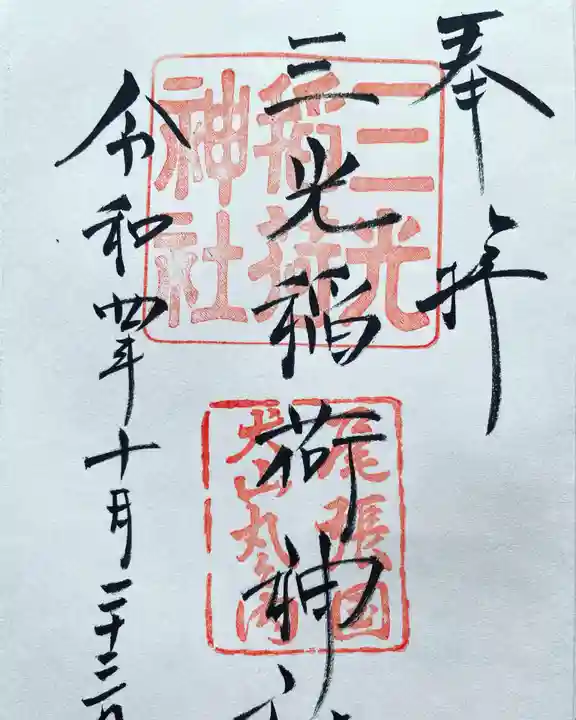 奉拝
三光稲荷神社
令和四年十月二十二日
三光
稲荷
神社
尾張国
犬山丸之内